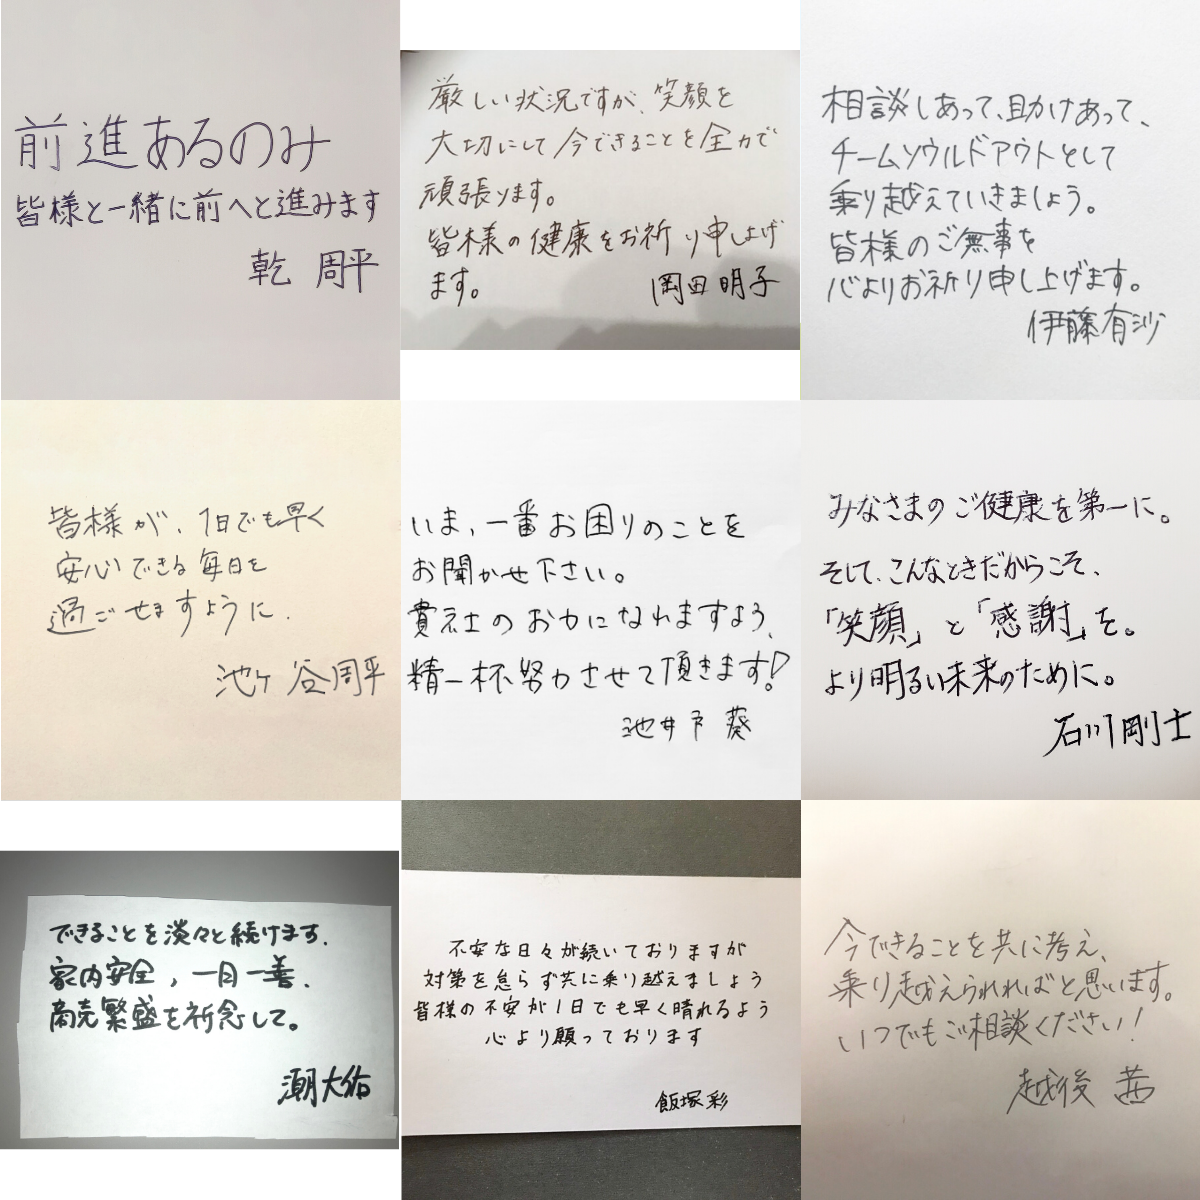 前進あるのみ
皆様と一緒に前へと進みます
乾 周平
厳しい状況ですが、笑顔を
大切にして今できることを全力で
頑張ります。
皆様の健康をお祈り申しあげ
ます。
岡田明子
相談しあって、助けあって、
チームソウルドアウトとして
乗り越えていきましょう。
皆様のご無事を
心よりお祈り申し上げます。
伊藤有沙
皆様が、1日でも早く
安心できる毎日を
過ごせますように.
池ヶ谷周平
いま、一番お困りのことを
お聞かせ下さい。
貴社のお力になれますよう、
精一杯努力させて頂きます!
池井戸 葵
みなさまのご健康を第一に。
そして、こんなときだからこそ、
「笑顔」と「感謝」を。
より明るい未来のために。
石川剛士
できることを淡々と続けます.
家内安全,一日一善.
商売繁盛を祈念して。
潮大佑
不安な日々が続いておりますが
対策を怠らず共に乗り越えましょう
皆様の不安が1日でも早く晴れるよう
心より願っております
飯塚彩
今できることを共に考え、
乗り越えられればと思います。
いつでもご相談ください!
越後 茜